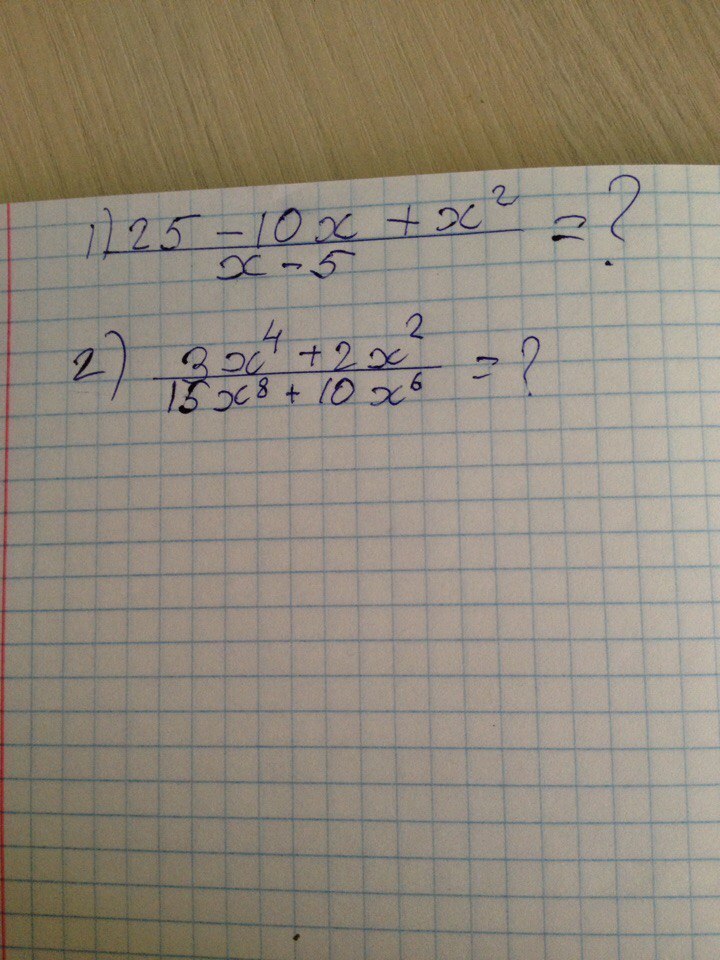 1) 25 - 10x + x² = ?
x - 5
2) 3x⁴ + 2x² = ?
15x⁸ + 10x⁶